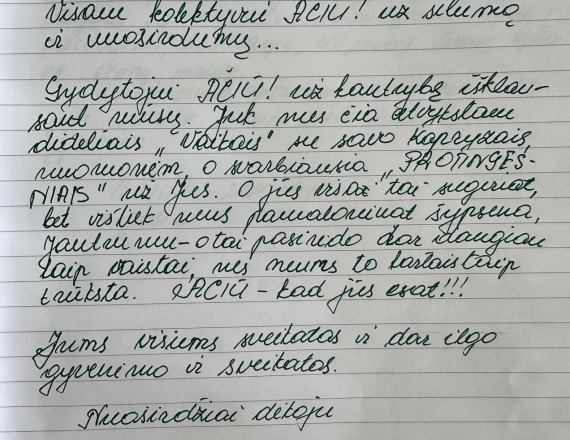 Visam kolektyvui AČIŪ! už šilumą
ir nuoširdumą...
Gydytojui AČIŪ! už kantrybę išklau-
sant mūsų. Juk mes čia atvykstam
dideliais „Vaikais" su savo kaprizais,
nuomonėm, o svarbiausia „PROTINGES-
NIAIS" už Jus. O jūs visa tai sugeriat,
bet vistiek mus pamaloninat šypsena,
jautrumu - o tai pasirodo dar daugiau
kaip vaistai, nes mums to kartais taip
trūksta. AČIŪ - kad jūs esat!!!
Jums visiems sveikatos ir dar ilgo
gyvenimo ir sveikatos.
Nuoširdžiai dėkoju